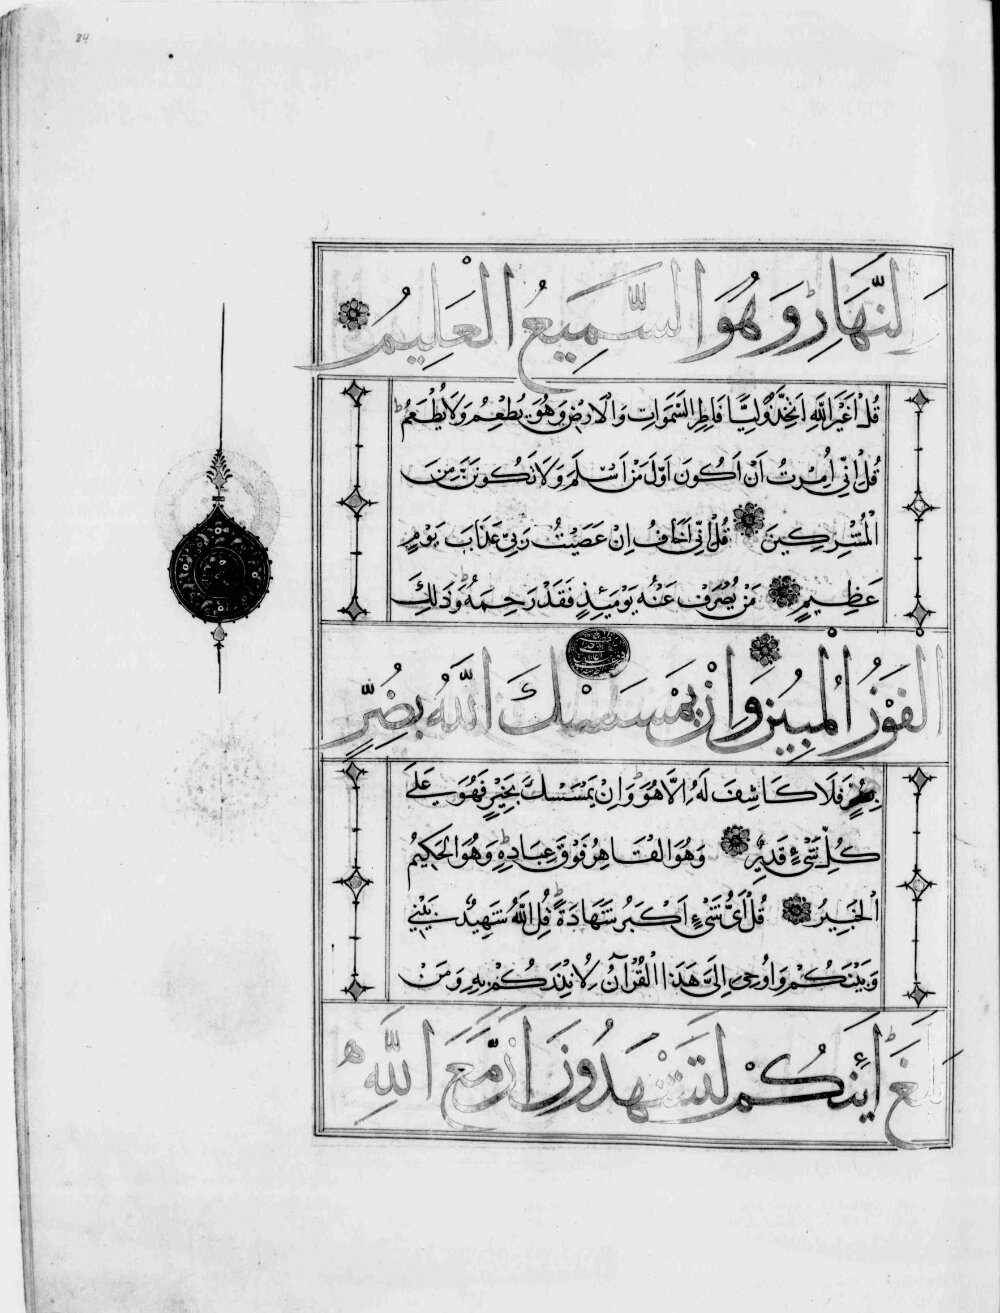 84
وَالنَّهَارِ وَهُوَ السَّمِيعُ الْعَلِيمُ
قُلْ أَغَيْرَ اللَّهِ اَتَّخِذُ وَلِيًّا فَاطِرِ السَّمَوَاتِ وَالْاَرْضِ وَهُوَ يُطْعِمُ وَلَا يُطْعَمُ ط
قُلْ اِنِّي اُمِرْتُ اَنْ اَكُونَ اَوَّلَ مَنْ اَسْلَمَ وَلَا تَكُونَنَّ مِنَ
الْمُشْرِكِينَ قُلْ اِنِّي اَخَافُ اِنْ عَصَيْتُ رَبِّي عَذَابَ يَوْمٍ
عَظِيمٍ مَنْ يُصْرَفْ عَنْهُ يَوْمَئِذٍ فَقَدْ رَحِمَهُ وَذَلِكَ
الْفَوْزُ الْمُبِينُ وَاِنْ يَمْسَسْكَ اللَّهُ بِضُرٍّ
فَلَا كَاشِفَ لَهُ اِلَّا هُوَ وَاِنْ يَمْسَسْكَ بِخَيْرٍ فَهُوَ عَلَى
كُلِّ شَيْءٍ قَدِيرٌ وَهُوَ الْقَاهِرُ فَوْقَ عِبَادِهِ ط وَهُوَ الْحَكِيمُ
الْخَبِيرُ قُلْ اَيُّ شَيْءٍ اَكْبَرُ شَهَادَةً ط قُلِ اللَّهُ شَهِيدٌ بَيْنِي
وَبَيْنَكُمْ وَاُوحِيَ اِلَيَّ هَذَا الْقُرْآنُ لِاُنْذِرَكُمْ بِهِ وَمَنْ
بَلَغَ ط أَئِنَّكُمْ لَتَشْهَدُونَ اَنَّ مَعَ اللَّهِ